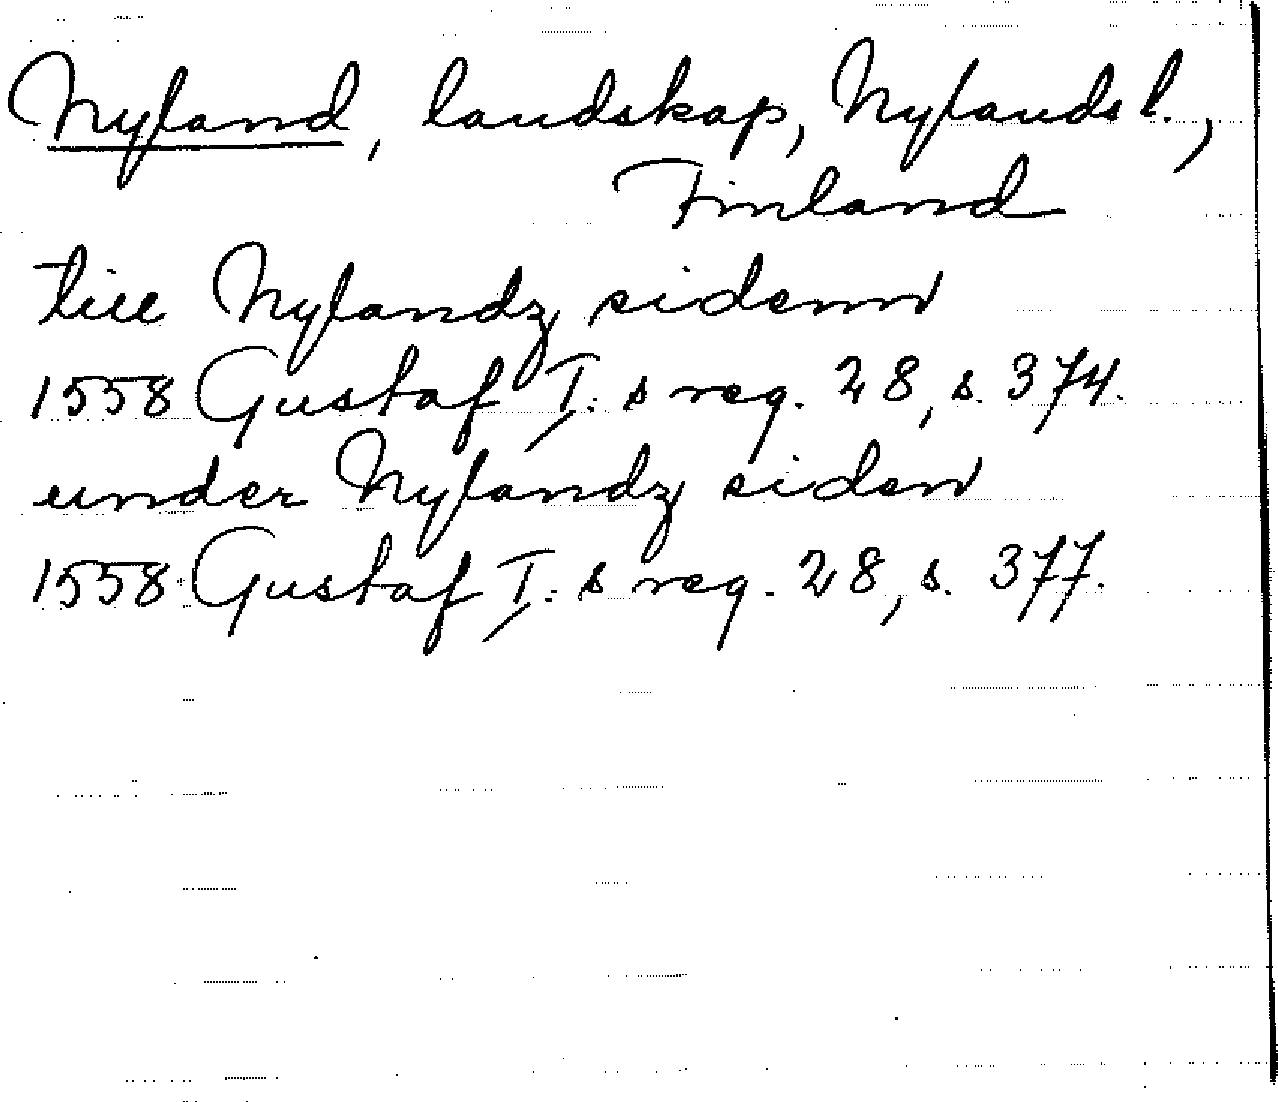 Nyland, landskap, Nylands l.,
Finland
till Nylandz sidenn
1558 Gustaf I:s reg. 28, s. 374.
under Nylandz siden
1558 Gustaf I:s reg. 28, s. 377.